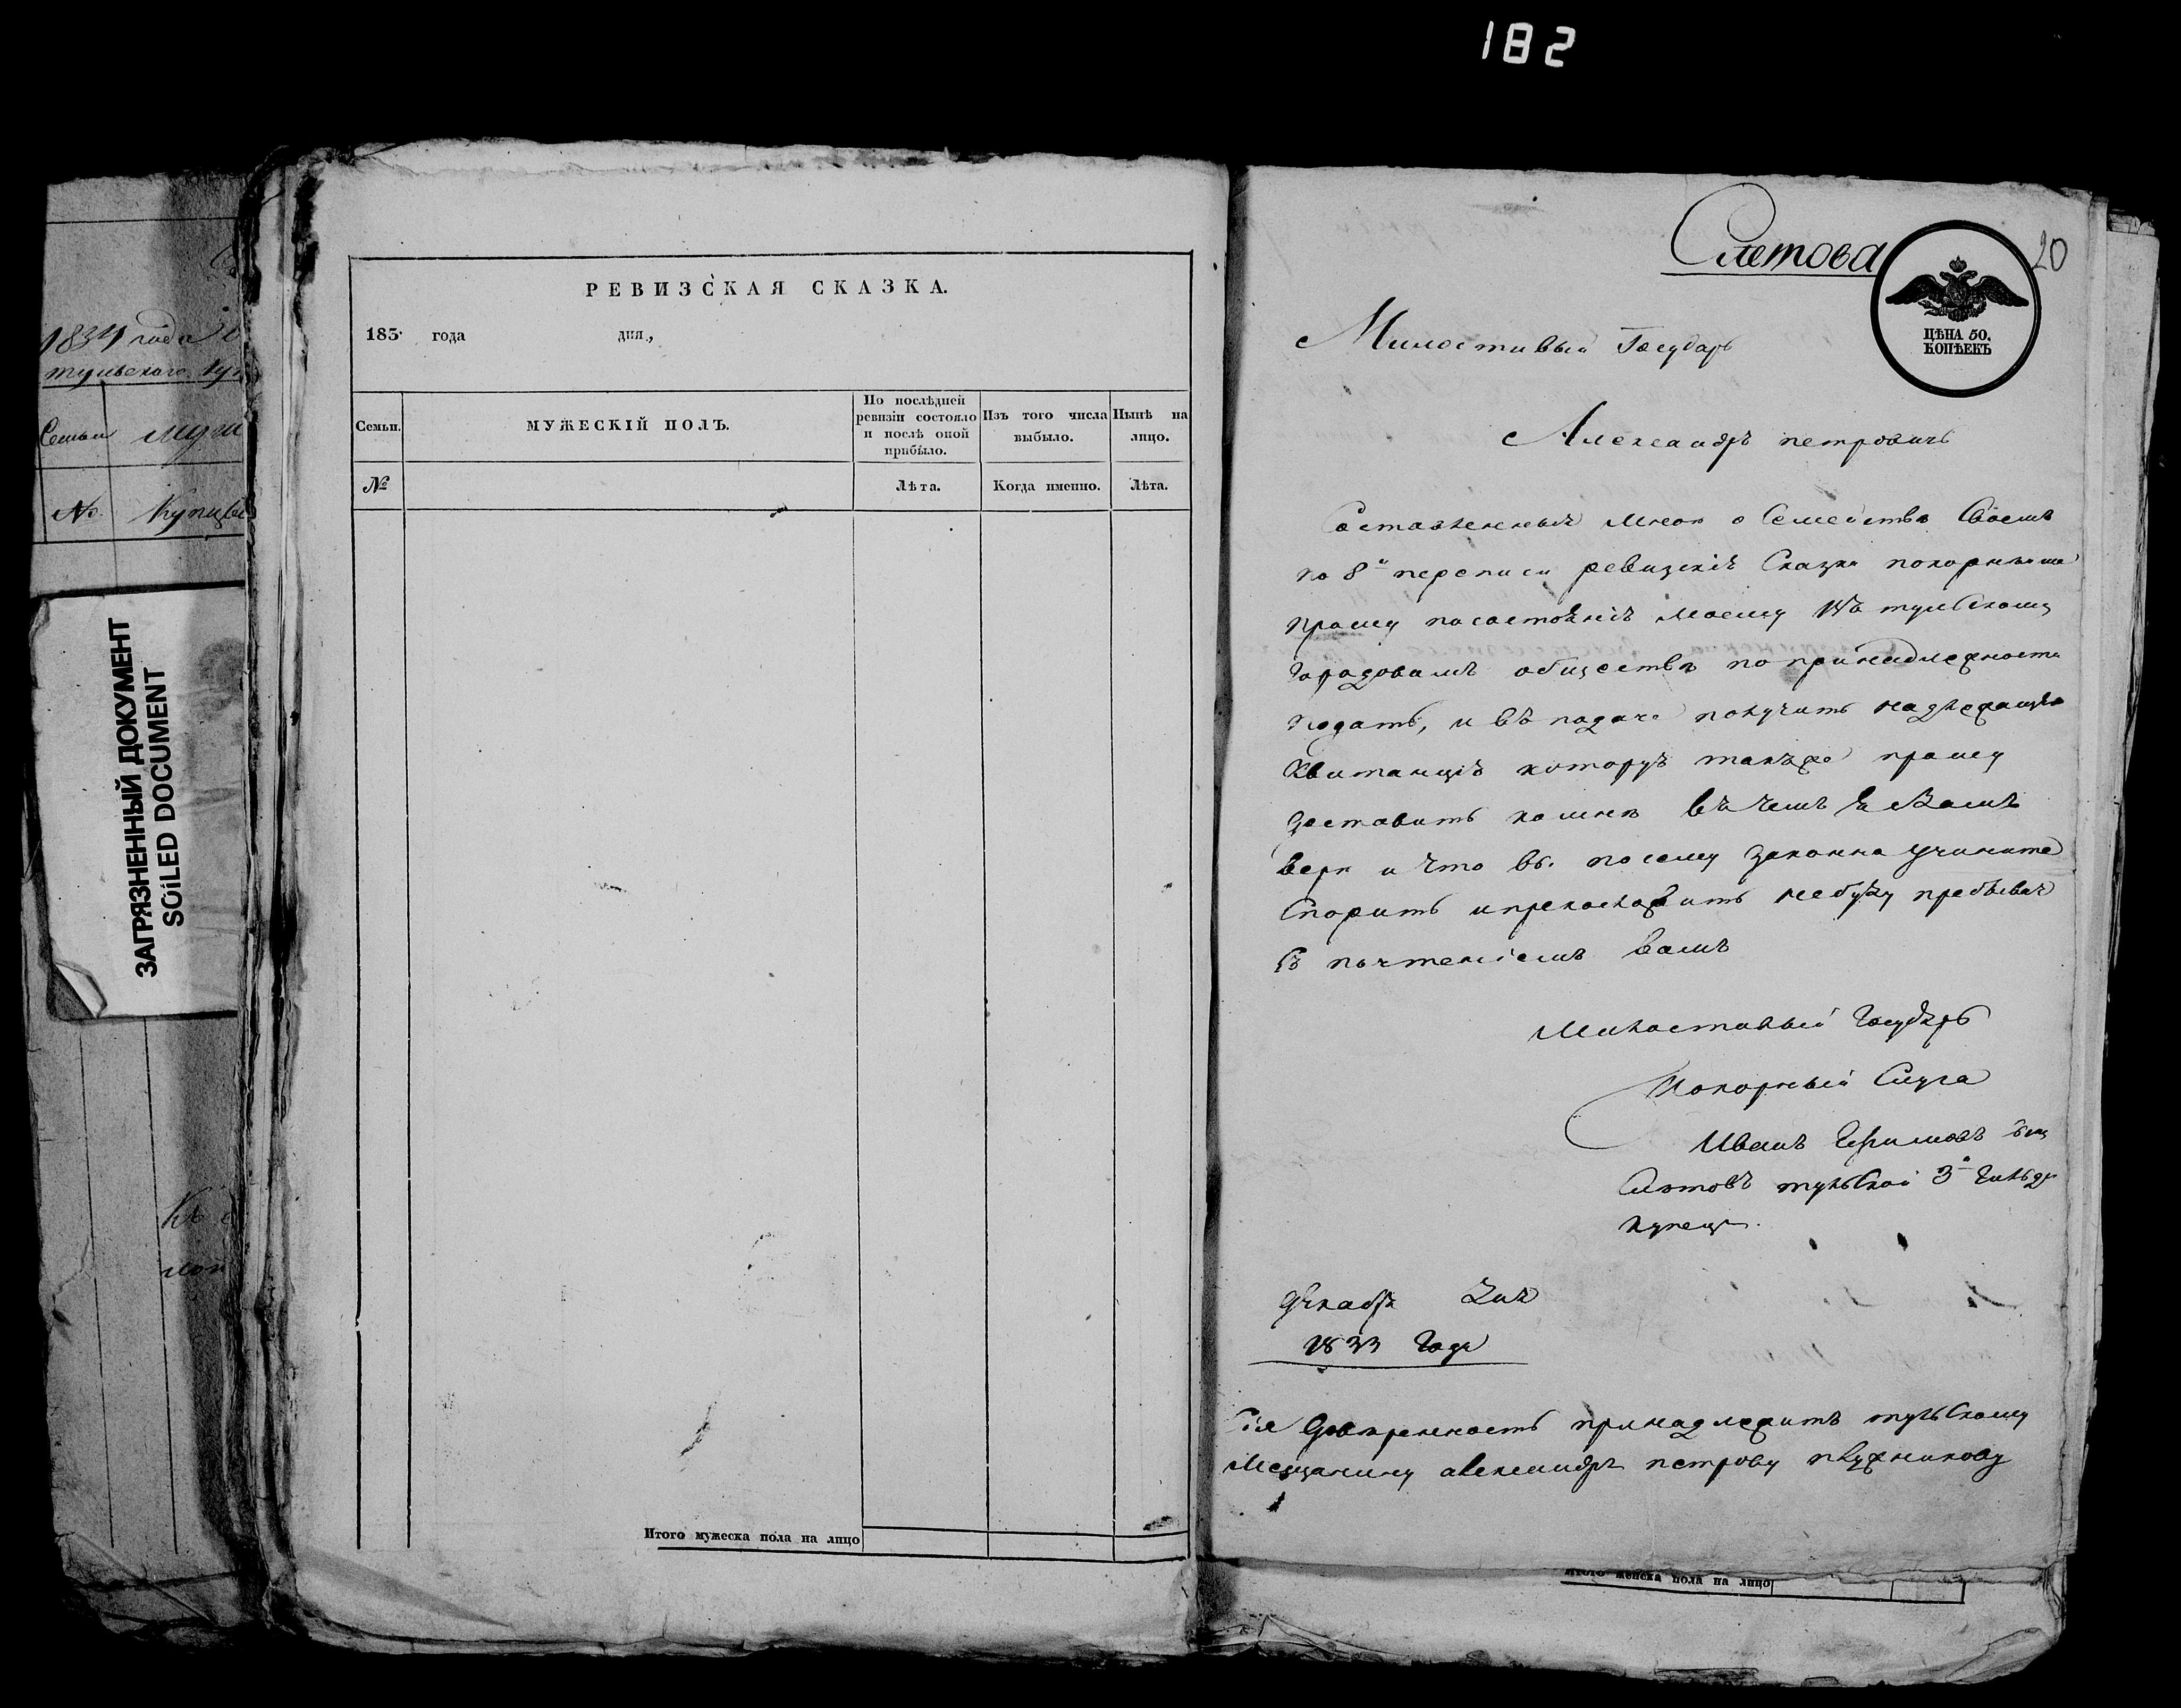 182
1834 года
тульскаго
Семьи
№
Купцы
ЗАГРЯЗНЕННЫЙ ДОКУМЕНТ
SOILED DOCUMENT
РЕВИЗСКАЯ СКАЗКА.
183 года дня,
Семьи.
МУЖЕСКІЙ ПОЛЪ.
По послѣдней ревизіи состояло и послѣ оной прибыло.
Изъ того числа выбыло.
Нынѣ на лицо.
№
Лѣта.
Когда именно.
Лѣта.
Итого мужеска пола на лицо
Слетова
20
ЦѢНА 50.
КОПѢЕКЪ
Милостивый Государь
Александръ петровичь
Составленныя мною о Семействѣ Своемъ
по 8й переписи ревизскія Сказки покорнѣише
прошу по состоянію моему въ тульскомъ
городовомъ обществѣ по принадлежности
подать, и въ подаче получить надлежащую
Квитанцію которую также прошу
доставить ко мнѣ въ чемъ я Вамъ
верю и что вы по сему законно учините
Спорить и прекословить небуду пребываю
Съ почтеніемъ вамъ
Милостивый Государь
Покорный Слуга
Иванъ
Слетовъ тульской 3й Гильди
купецъ.
Декабря дня
1833 Года
Сія Доверенность принадлежитъ тульскому
Мещанину александру петрову
Итого женска пола на лицо